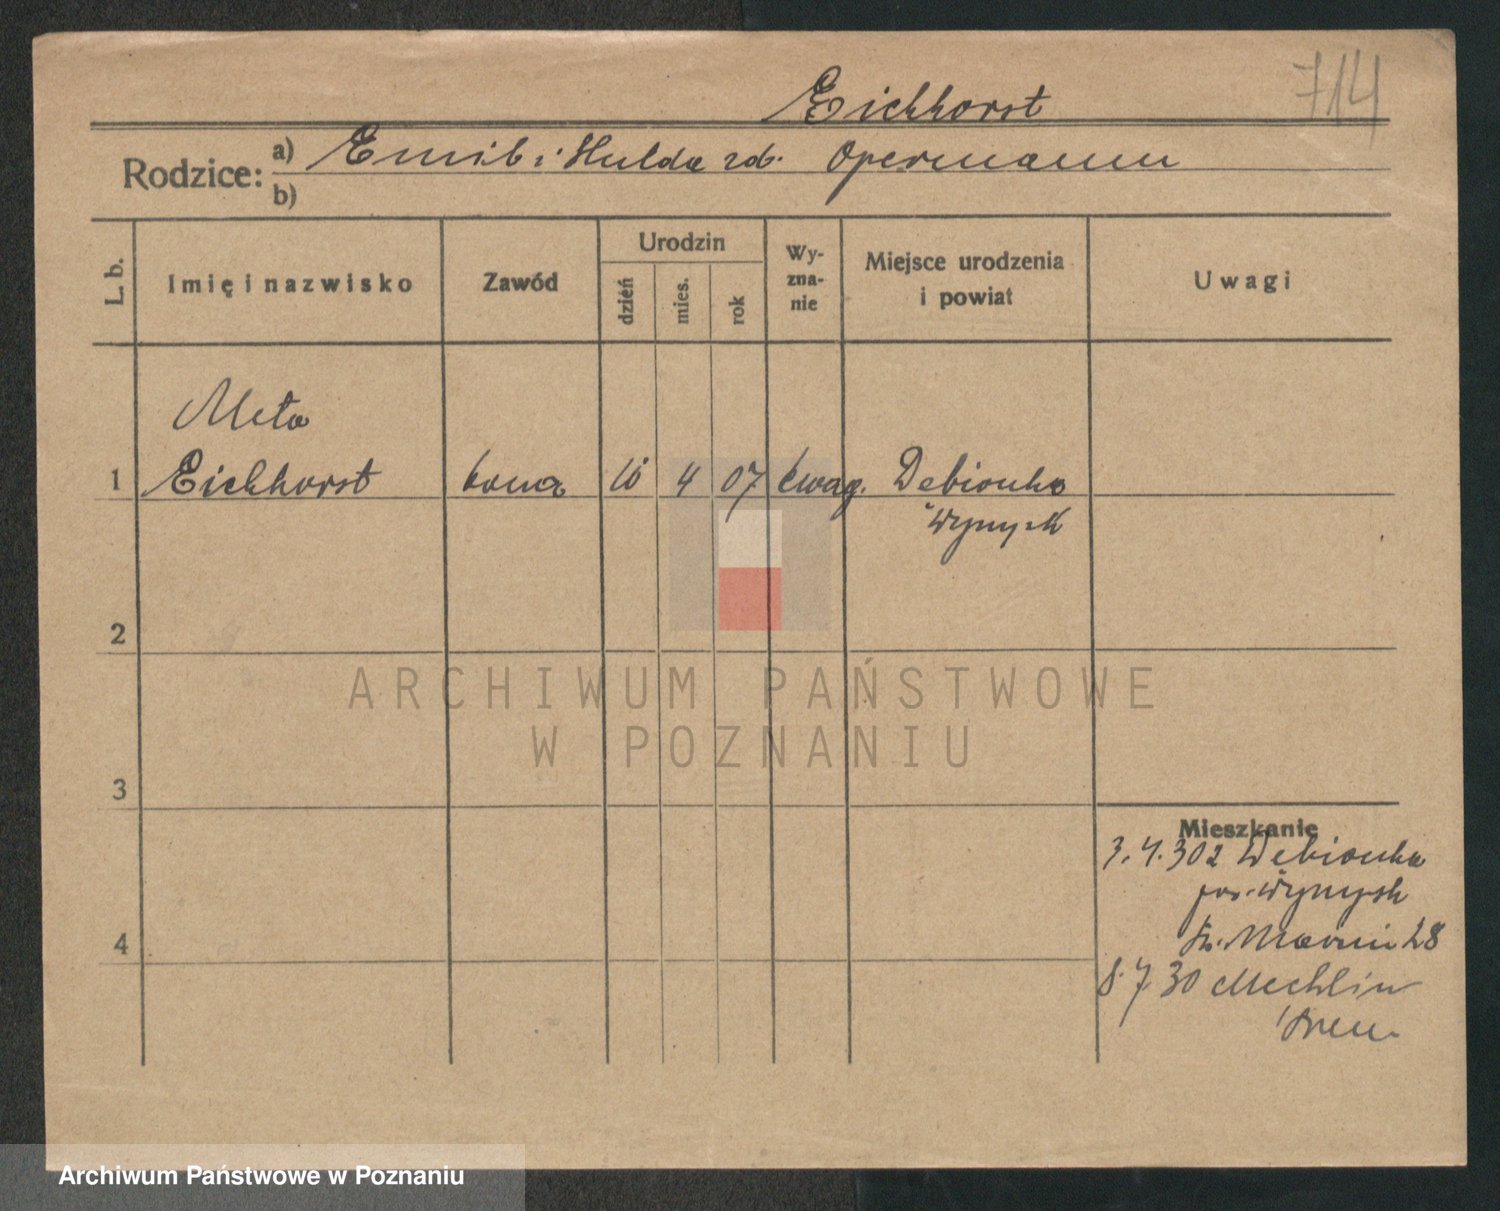 714
Eichhorst
Rodzice:
a) Emil i Hulda zd. Opermann
b)
L. b.
Imię i nazwisko
Zawód
Urodzin
dzień
mies.
rok
Wy-
zna-
nie
Miejsce urodzenia
i powiat
Uwagi
Meta
1 Eichhorst bona 4 07 ewag. Debionka
Wyrzysk
2
ARCHIWUM PAŃSTWOWE
W POZNANIU
3
Mieszkanie
3.4.30 z Debionka
pow. Wyrzysk
Św. Marcin 28
4
8.7 30 Mechlin
Śrem
Archiwum Państwowe w Poznaniu